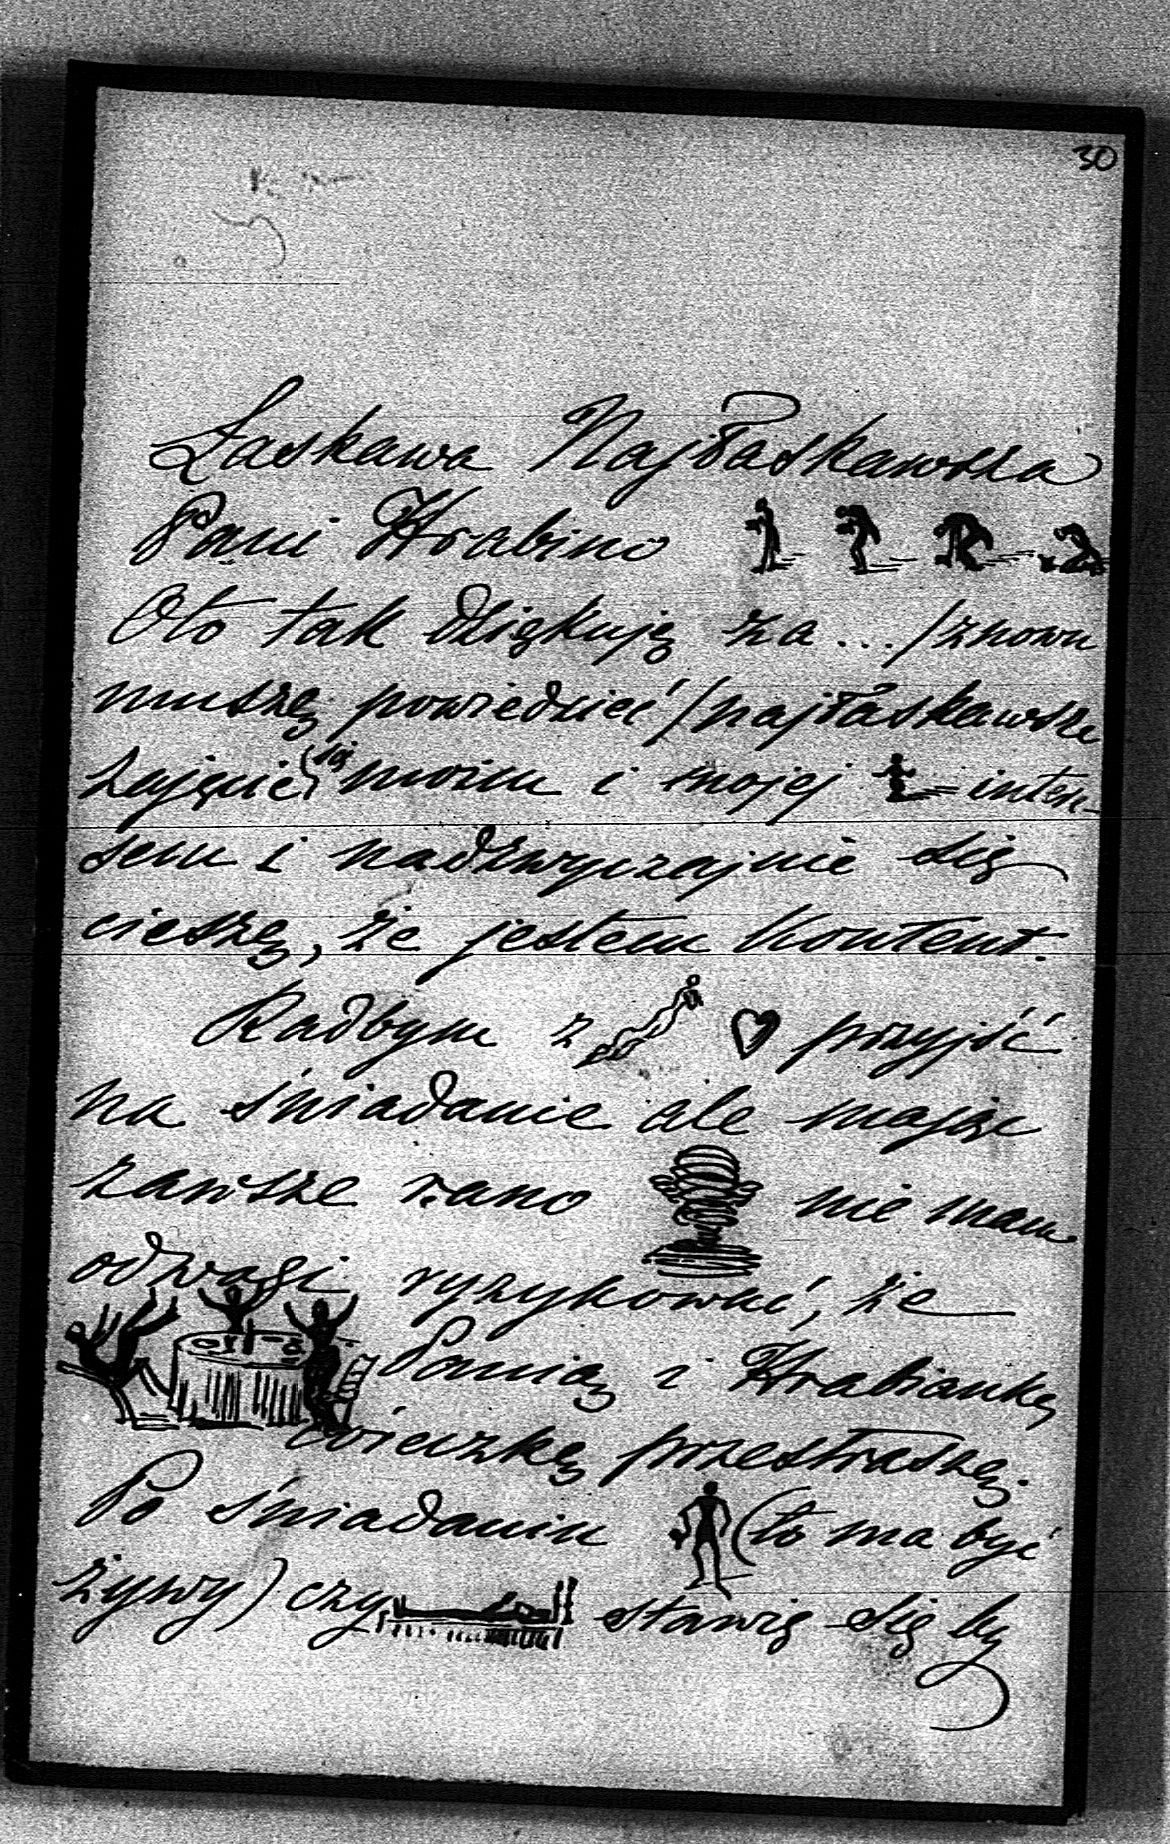 30
Łaskawa Najłaskawsza
Pani Hrabino
Oto tak dziękuję za ... /znowu
muszę powiedzieć/ najłaskawsze
zajęcie się moim i mojej inten-
sem i nadzwyczajnie się
cieszę, że jestem Kontent.
Radbym z przyjść
na śniadanie ale mając
zawsze rano nie mam
odwagi ryzykować, że
Panią i Hrabiankę
owieczkę przestraszę.
Po śniadaniu (to ma być
żywy) czy stawię się by